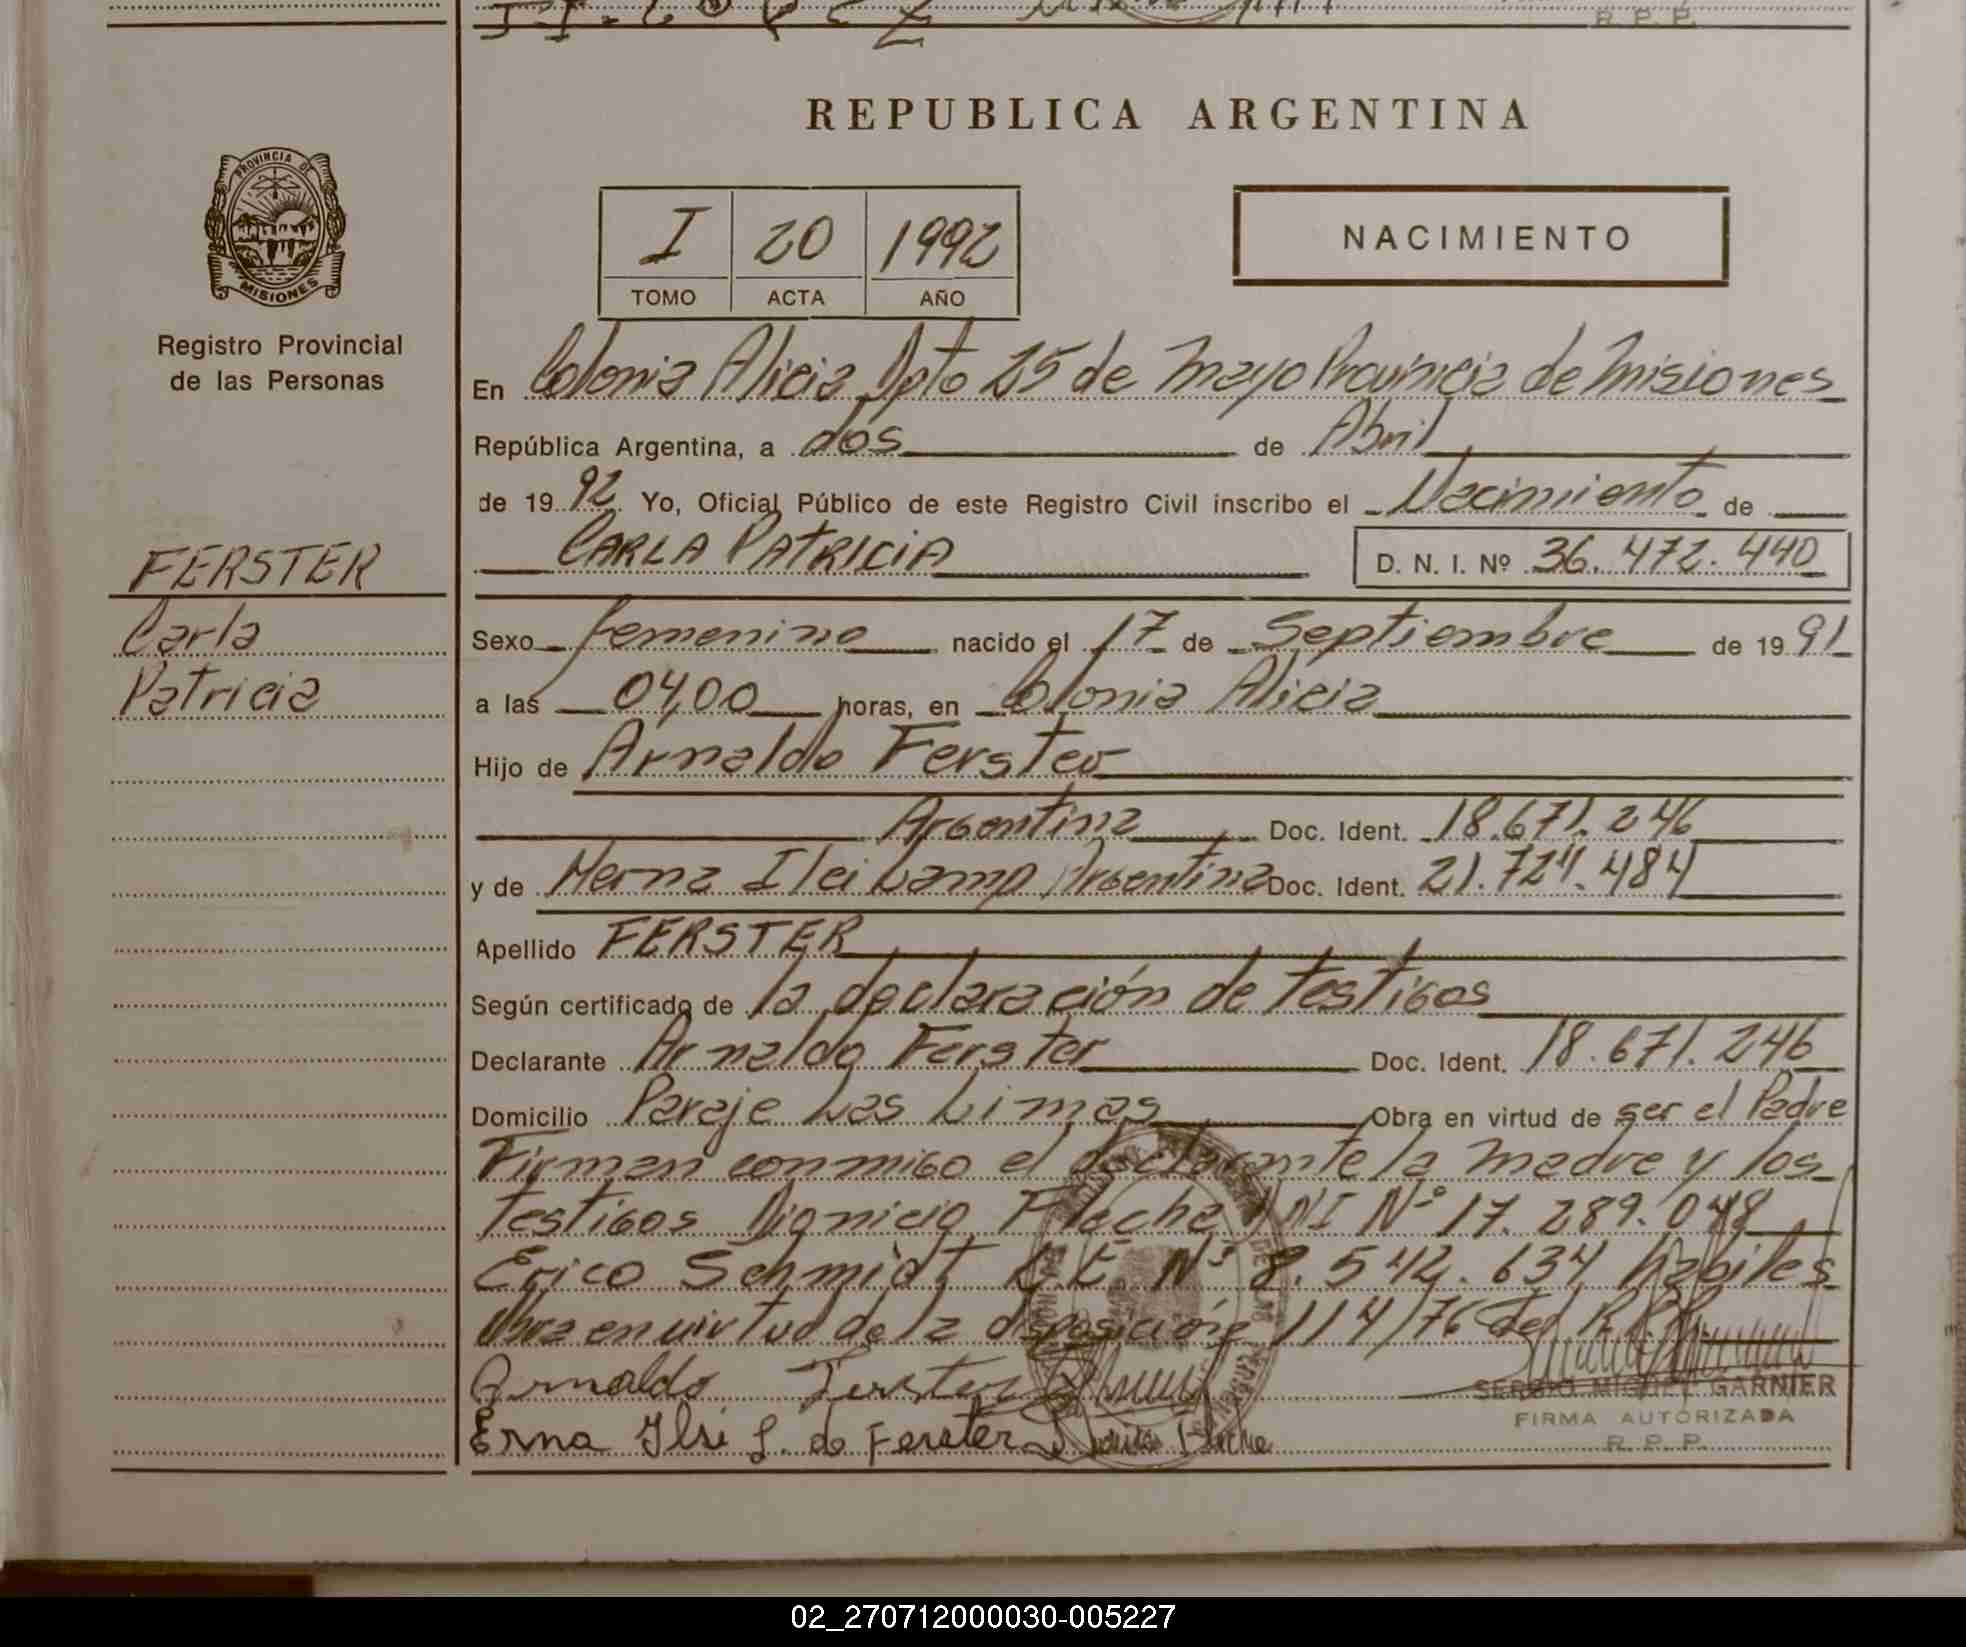 R. P. P.
REPUBLICA ARGENTINA
PROVINCIA DE
MISIONES
Registro Provincial
de las Personas
I 20 1992
TOMO ACTA AÑO
NACIMIENTO
En Colonia Alicia Dpto 25 de Mayo Provincia de Misiones
República Argentina, a dos de Abril
de 1992 Yo, Oficial Público de este Registro Civil inscribo el Nacimiento de
CARLA PATRICIA D. N. I. Nº 36.472.440
FERSTER
Carla
Patricia
Sexo femenino nacido el 17 de Septiembre de 1991
a las 04,00 horas, en Colonia Alicia
Hijo de Arnaldo Ferster
Argentina Doc. Ident. 18.671.246
y de Herna Ilci Lamp Argentina Doc. Ident. 21.724.484
Apellido FERSTER
Según certificado de la declaración de testigos
Declarante Arnaldo Ferster Doc. Ident. 18.671.246
Domicilio Paraje Las Limas Obra en virtud de ser el Padre
Firman conmigo el declarante la madre y los
testigos Dionicio Fleche DNI Nº 17.289.048
Erico Schmidt L.E. Nº 8.542.634 habiles
Obra en virtud de la disposición 114/76 del R.P.P.
Arnaldo Ferster
Erna Ilsi L. de Ferster
SERGIO MIGUEL GARNIER
FIRMA AUTORIZADA
R. P. P.
02_270712000030-005227